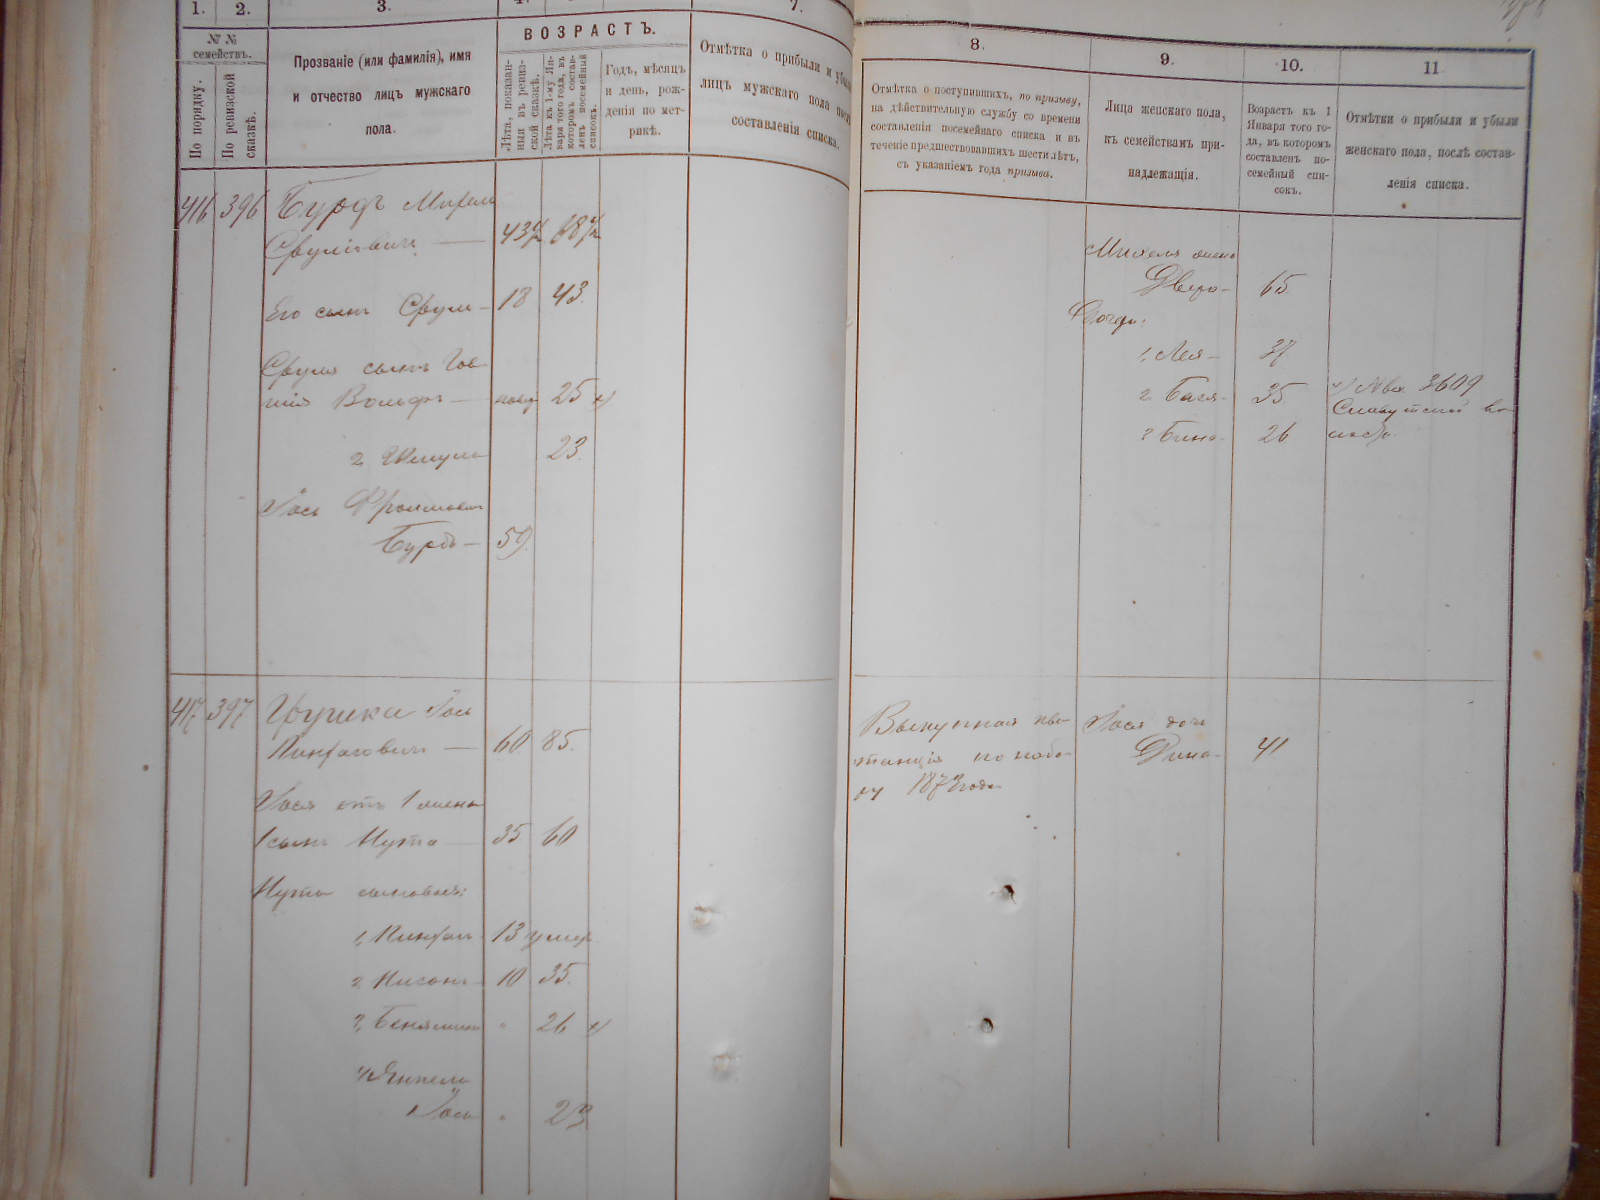 1.
2.
3.
7.
№ №
семействъ.
По порядку.
По ревизской
сказкѣ.
Прозваніе (или фамилія), имя
и отчество лицъ мужскаго
пола.
ВОЗРАСТЪ.
Лѣта, показан-
ныя въ ревиз-
ской сказкѣ.
Лѣта къ 1-му Ян-
варя того года, въ
которомъ состав-
ленъ посемейный
списокъ.
Годъ, мѣсяцъ
и день, рож-
денія по мет-
рикѣ.
Отмѣтка о прибыли и
лицъ мужскаго пола
составленія списка.
416 396 Бурдъ
Срулевичъ — 43
Его сынъ Сруль — 18 43.
Сруля сынъ
Вольфъ — 25
2 Шмуль 23.
Іось Фроимовичъ
Бурдъ — 59.
417 397 Іось
Пинхасовичъ — 60. 85.
Іося отъ 1 жены
1 сынъ Нута — 35 60
Нуты сыновья:
1, Пинхасъ 13 умер.
2, Нисонъ — 10 35.
3, Беняминъ " 26
4, Янкель
Іось " 23
8.
9.
10.
11
Отмѣтка о поступившихъ, по призыву,
на дѣйствительную службу со времени
составленія посемейнаго списка и въ
теченіе предшествовавшихъ шести лѣтъ,
съ указаніемъ года призыва.
Лица женскаго пола,
къ семействамъ при-
надлежащія.
Возрастъ къ 1
Января того го-
да, въ которомъ
составленъ по-
семейный спи-
сокъ.
Отмѣтки о прибыли и убыли
женскаго пола, послѣ состав-
ленія списка.
жена
Двера — 65
Дочери:
1, Лея — 37
2 Бася — 35 3609
Славутской во-
3 Бина — 26
Выкупная кви-
танція по набо-
ру 1873 года
Іося дочь
Дина — 41